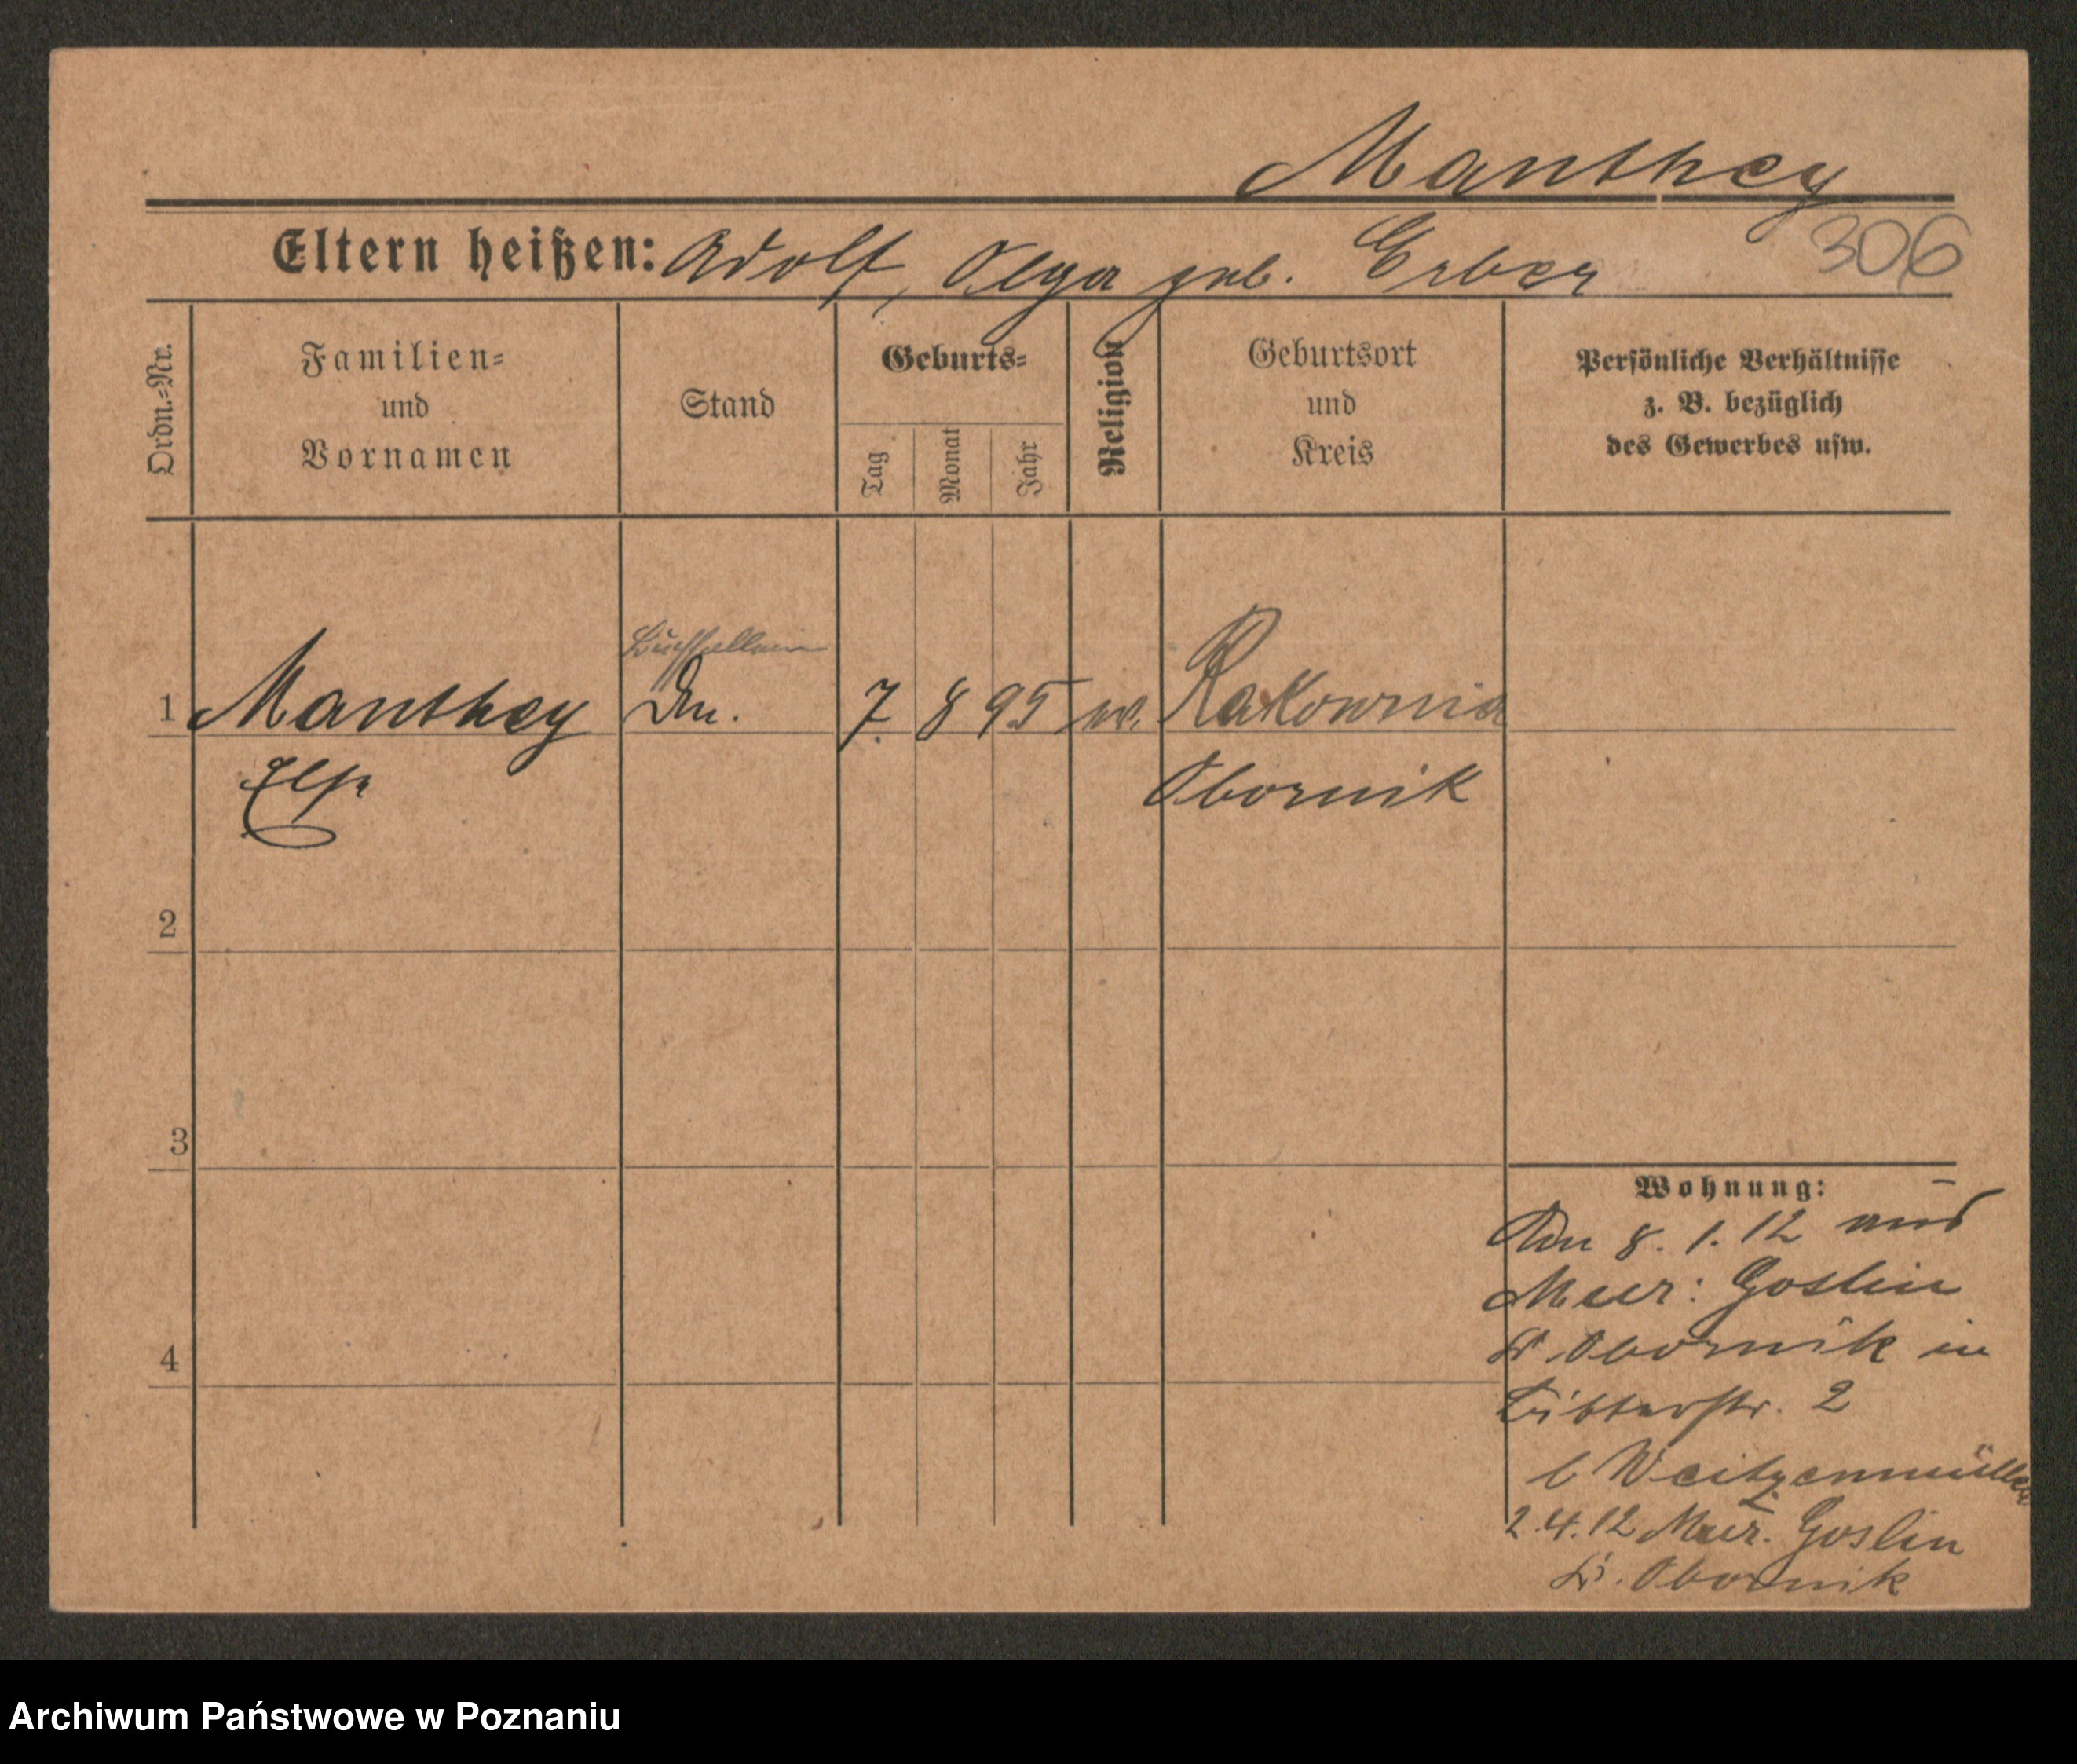 Manthey
306
Eltern heißen: Adolf, Olga geb. Erber
Ordn.=Nr.
Familien=
und
Vornamen
Stand
Geburts=
Tag
Monat
Jahr
Religion
Geburtsort
und
Kreis
Persönliche Verhältnisse
z. B. bezüglich
des Gewerbes usw.
1 Manthey 7. 8 95 Rakownia
Else Obornik
2
3
4
Wohnung:
8. 1. 12 aus
Mur: Goslin
Kr. Obornik in
Ritterstr. 2
b Weitzenmüller
2.4.12 Mur. Goslin
Kr. Obornik
Archiwum Państwowe w Poznaniu